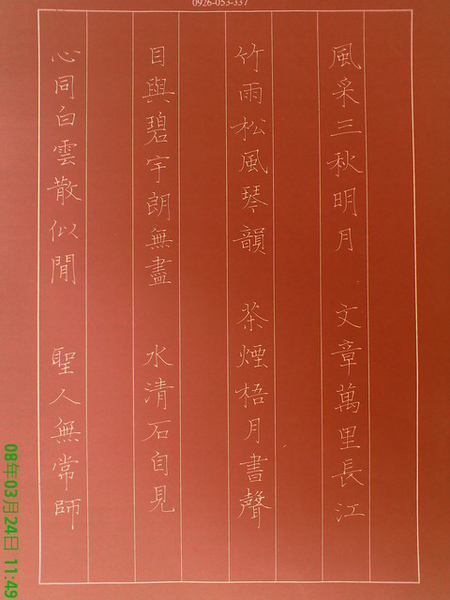 0926-053-337
風采三秋明月 文章萬里長江
竹雨松風琴韻 茶煙梧月書聲
目與碧宇朗無盡 水清石自見
心同白雲散似閒 聖人無常師
08年03月24日 11:49